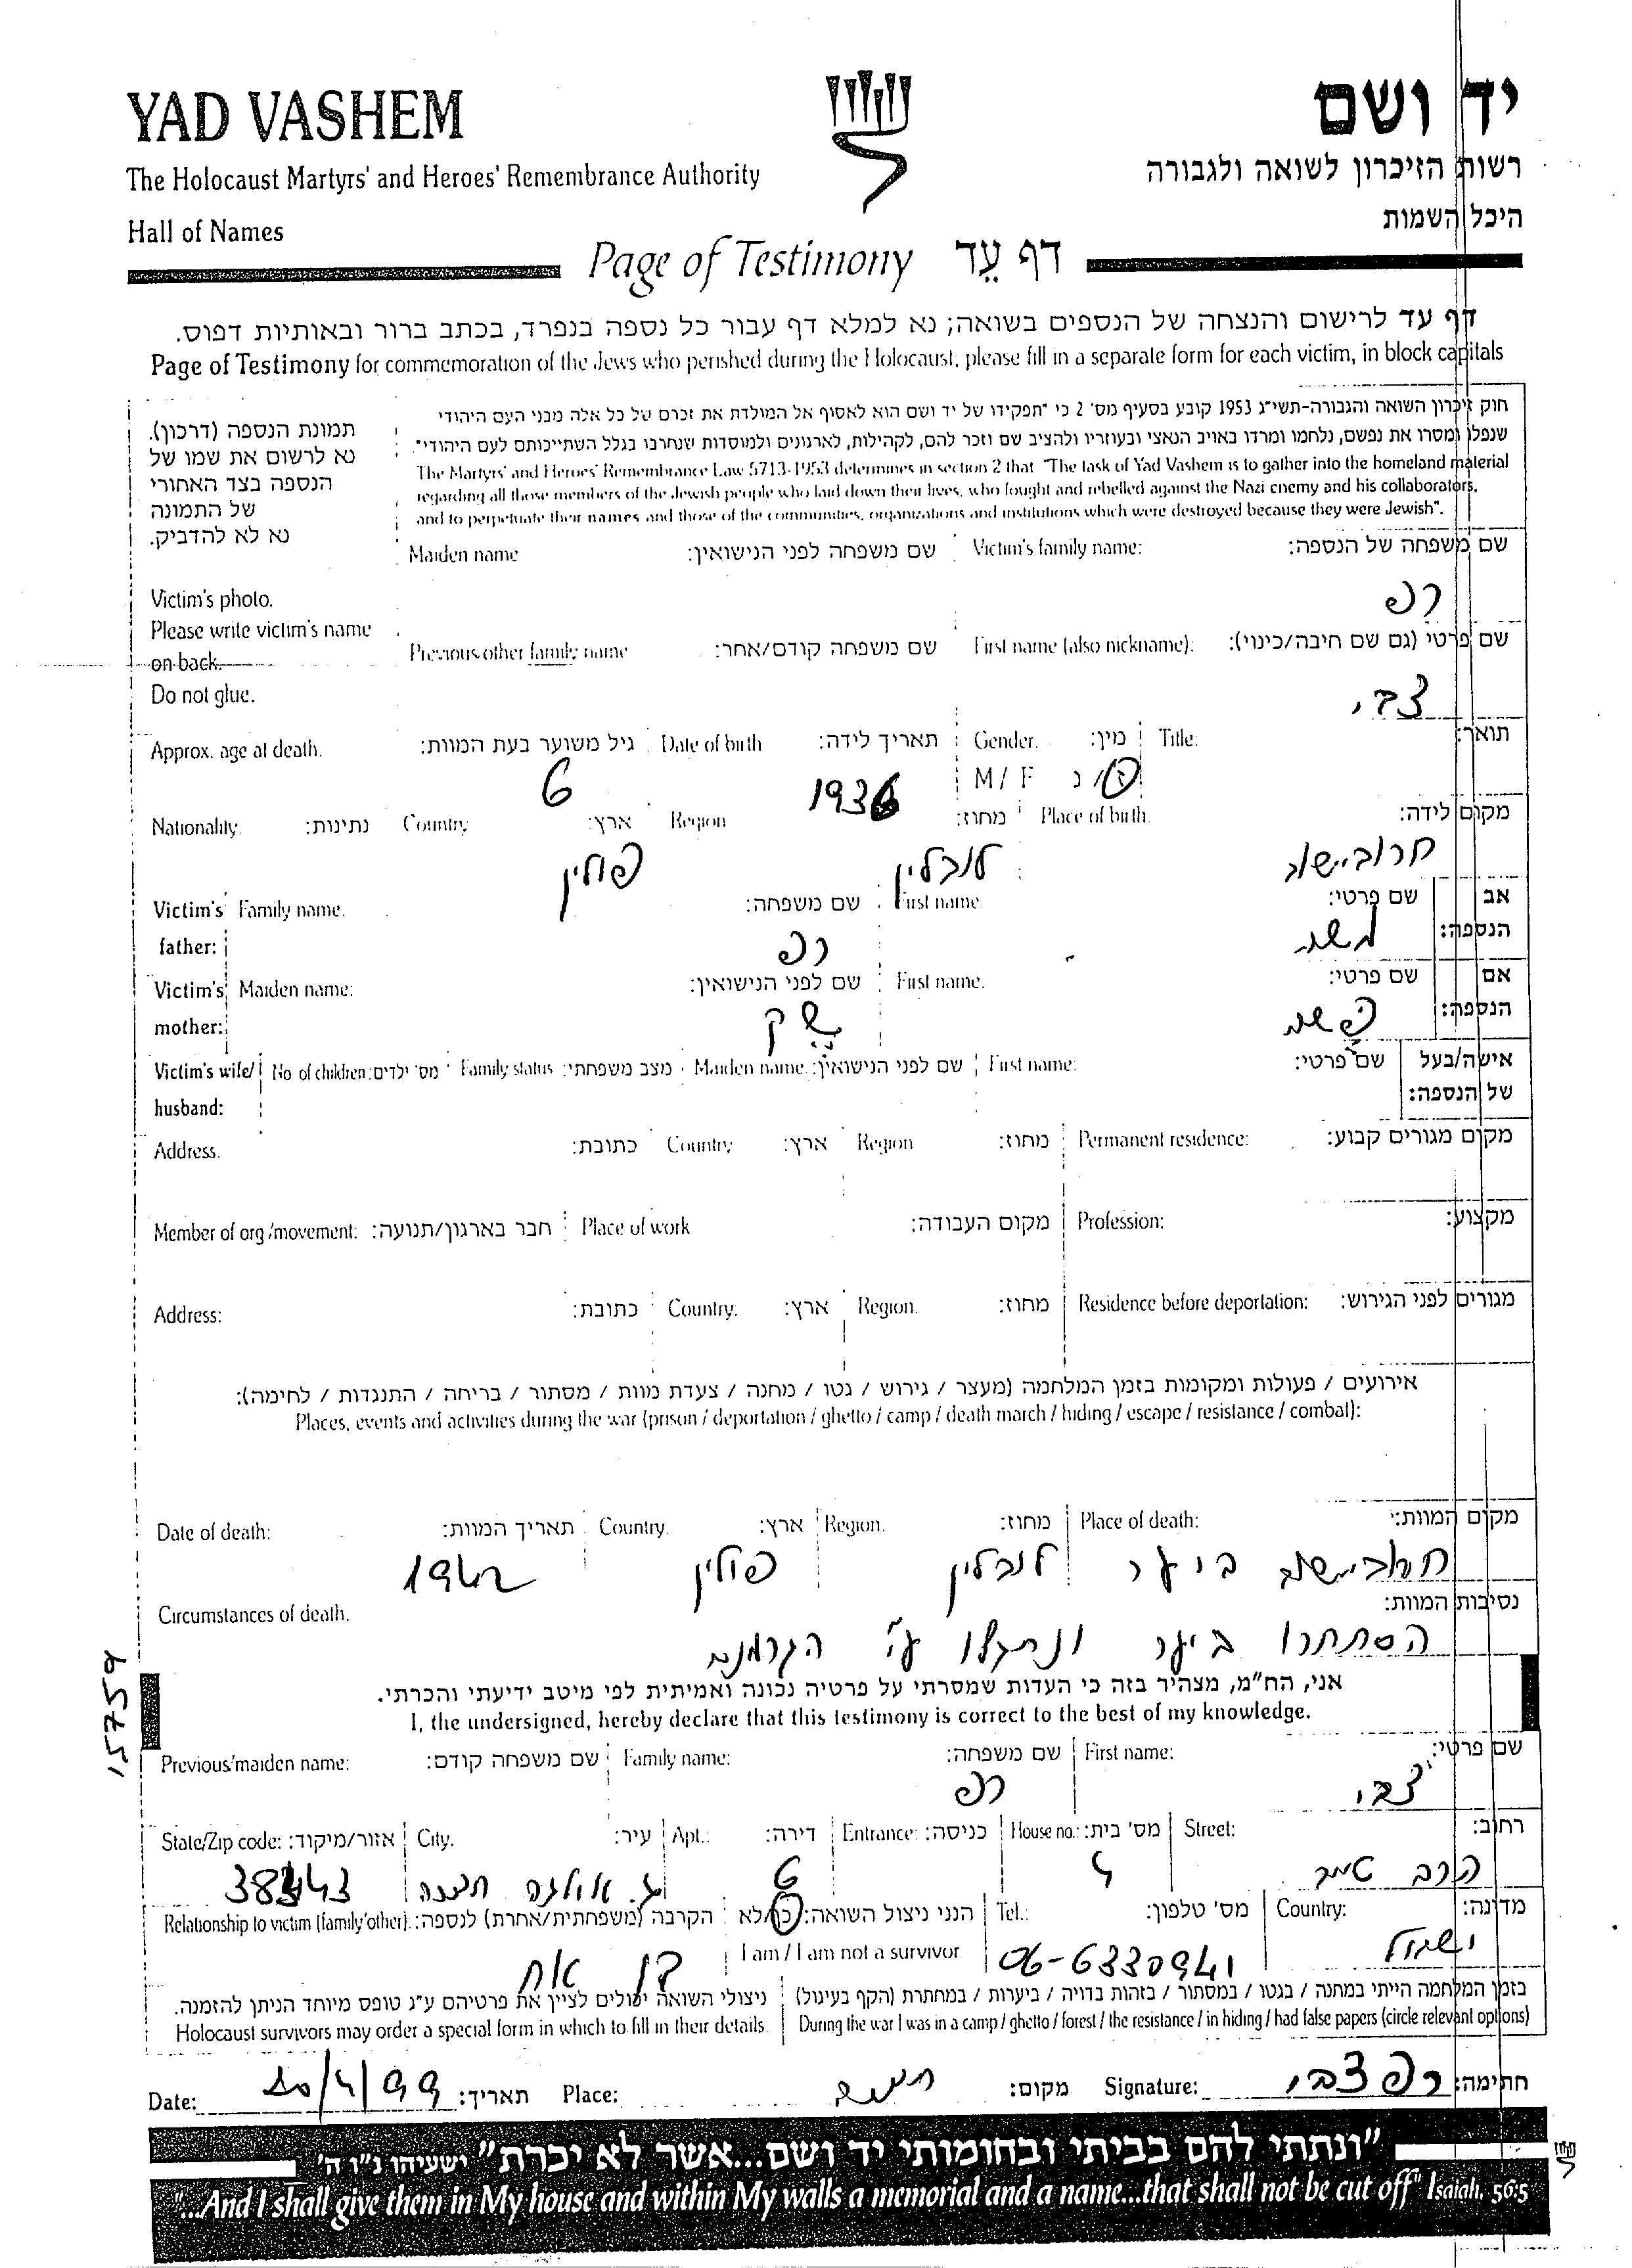 YAD VASHEM
יד ושם
The Holocaust Martyrs' and Heroes' Remembrance Authority
רשות הזיכרון לשואה ולגבורה
Hall of Names
היכל השמות
Page of Testimony דף עֵד
דף עד לרישום והנצחה של הנספים בשואה; נא למלא דף עבור כל נספה בנפרד, בכתב ברור ובאותיות דפוס.
Page of Testimony for commemoration of the Jews who perished during the Holocaust; please fill in a separate form for each victim, in block capitals
תמונת הנספה (דרכון).
נא לרשום את שמו של
הנספה בצד האחורי
של התמונה
נא לא להדביק.
Victim's photo.
Please write victim's name
on back.
Do not glue.
חוק זיכרון השואה והגבורה-תשי"ג 1953 קובע בסעיף מס' 2 כי "תפקידו של יד ושם הוא לאסוף אל המולדת את זכרם של כל אלה מבני העם היהודי
שנפלו ומסרו את נפשם, נלחמו ומרדו באויב הנאצי ובעוזריו ולהציב שם וזכר להם, לקהילות, לארגונים ולמוסדות שנחרבו בגלל השתייכותם לעם היהודי".
The Martyrs' and Heroes' Remembrance Law 5713-1953 determines in section 2 that "The task of Yad Vashem is to gather into the homeland material
regarding all those members of the Jewish people who laid down their lives, who fought and rebelled against the Nazi enemy and his collaborators,
and to perpetuate their names and those of the communities, organizations and institutions which were destroyed because they were Jewish".
שם משפחה של הנספה: Victim's family name: שם משפחה לפני הנישואין: Maiden name
רפ
שם פרטי (גם שם חיבה/כינוי): First name (also nickname): שם משפחה קודם/אחר: Previous/other family name
צבי
תואר: Title: מין: Gender. תאריך לידה: Date of birth גיל משוער בעת המוות: Approx. age at death.
ז/נ M / F 1936 6
מקום לידה: Place of birth. מחוז: Region ארץ: Country נתינות: Nationality.
חרוביישוב לובלין פולין
אב הנספה: שם פרטי: First name. שם משפחה: Family name. Victim's father:
משה רפ
אם הנספה: שם פרטי: First name. שם לפני הנישואין: Maiden name: Victim's mother:
אישה/בעל של הנספה: שם פרטי: First name: שם לפני הנישואין: Maiden name מצב משפחתי: Family status מס' ילדים: No of children Victim's wife/ husband:
מקום מגורים קבוע: Permanent residence: מחוז: Region ארץ: Country כתובת: Address.
מקצוע: Profession: מקום העבודה: Place of work חבר בארגון/תנועה: Member of org /movement:
מגורים לפני הגירוש: Residence before deportation: מחוז: Region. ארץ: Country: כתובת: Address:
אירועים / פעולות ומקומות בזמן המלחמה (מעצר / גירוש / גטו / מחנה / צעדת מוות / מסתור / בריחה / התנגדות / לחימה):
Places, events and activities during the war (prison / deportation / ghetto / camp / death march / hiding / escape / resistance / combat):
מקום המוות: Place of death: מחוז: Region. ארץ: Country. תאריך המוות: Date of death:
חרוביישוב ביער לובלין פולין 1942
נסיבות המוות: Circumstances of death.
הסתתרו ביער ונתגלו ע"י הגרמנים
אני, הח"מ, מצהיר בזה כי העדות שמסרתי על פרטיה נכונה ואמיתית לפי מיטב ידיעתי והכרתי.
I, the undersigned, hereby declare that this testimony is correct to the best of my knowledge.
15759
שם פרטי: First name: שם משפחה: Family name: שם משפחה קודם: Previous/maiden name:
צבי רפ
רחוב: Street: מס' בית: House no.: כניסה: Entrance: דירה: Apt.: עיר: City. אזור/מיקוד: State/Zip code:
הרב 4 6 ג. אולגה חדרה 38443
מדינה: Country: מס' טלפון: Tel.: הנני ניצול השואה: כן/לא I am / I am not a survivor הקרבה (משפחתית/אחרת) לנספה: Relationship to victim (family/other):
ישראל 06-6330941 בן אח
בזמן המלחמה הייתי במחנה / בגטו / במסתור / בזהות בדויה / ביערות / במחתרת (הקף בעיגול)
During the war I was in a camp / ghetto / forest / the resistance / in hiding / had false papers (circle relevant options)
ניצולי השואה יכולים לציין את פרטיהם ע"ג טופס מיוחד הניתן להזמנה.
Holocaust survivors may order a special form in which to fill in their details.
חתימה: רפ צבי Signature: מקום: חדרה Place: תאריך: 20/4/99 Date:
"ונתתי להם בביתי ובחומותי יד ושם...אשר לא יכרת" ישעיהו נ"ו ה'
"...And I shall give them in My house and within My walls a memorial and a name...that shall not be cut off" Isaiah, 56:5